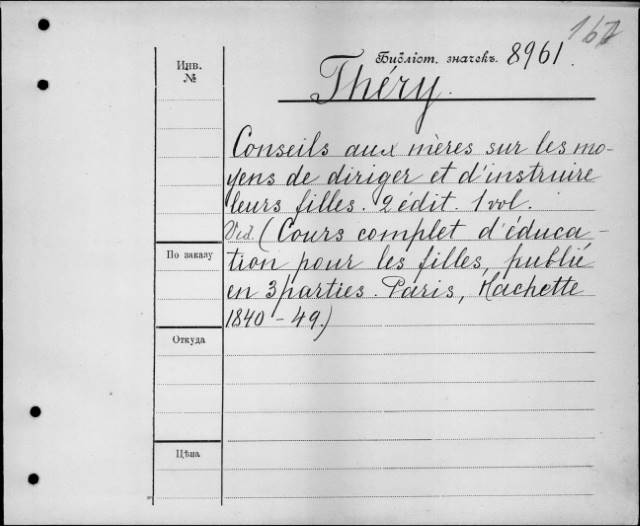 162
Инв. №
Библіот. значекъ. 8961.
Théry.
Conseils aux mères sur les mo-
yens de diriger et d'instruire
leurs filles. 2 édit. 1 vol.
Vid. (Cours complet d'éduca-
tion pour les filles, publié
en 3 parties. Paris, Hachette
1840-49.)
По заказу
Откуда
Цѣна